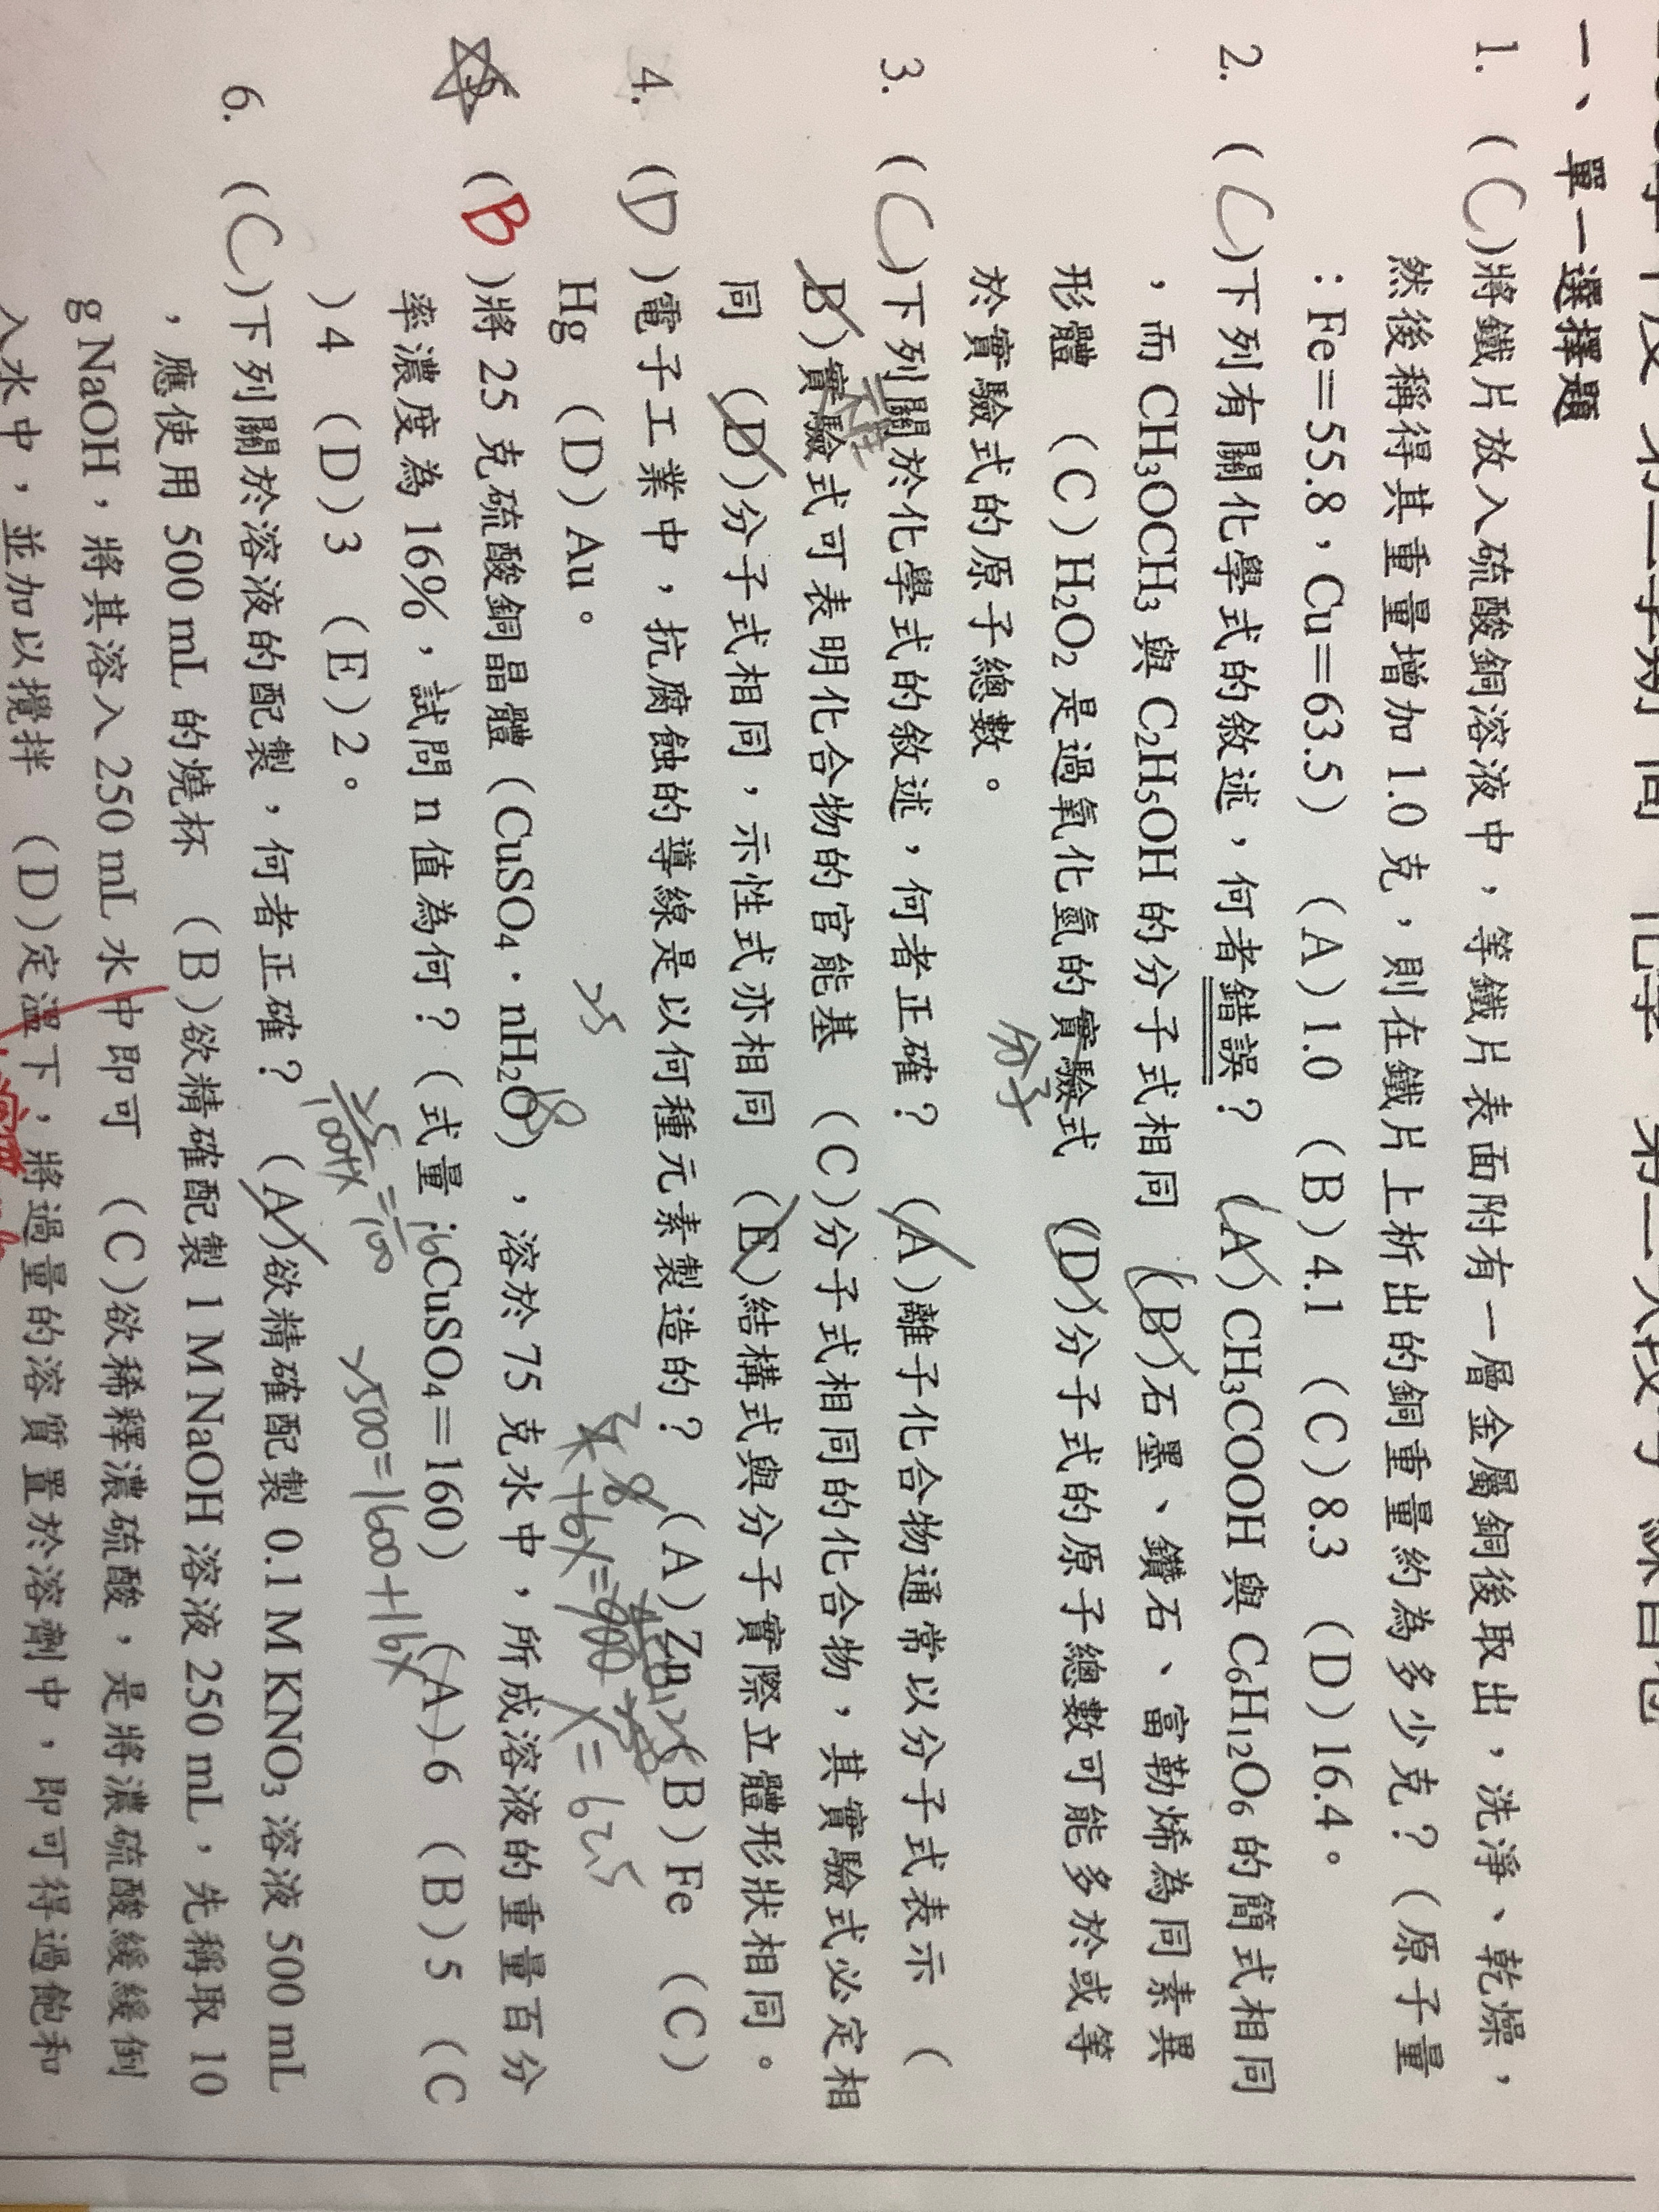 一、單一選擇題
1. (C)將鐵片放入硫酸銅溶液中，等鐵片表面附有一層金屬銅後取出，洗淨、乾燥，
然後稱得其重量增加 1.0 克，則在鐵片上析出的銅重量約為多少克？（原子量
：Fe＝55.8，Cu＝63.5） (A)1.0 (B)4.1 (C)8.3 (D)16.4。
2. (C)下列有關化學式的敘述，何者錯誤？ (A)CH₃COOH 與 C₆H₁₂O₆ 的簡式相同
，而 CH₃OCH₃ 與 C₂H₅OH 的分子式相同 (B)石墨、鑽石、富勒烯為同素異
形體 (C)H₂O₂ 是過氧化氫的實驗式 (D)分子式的原子總數可能多於或等
分子
於實驗式的原子總數。
3. (C)下列關於化學式的敘述，何者正確？ (A)離子化合物通常以分子式表示 (
B)實驗式可表明化合物的官能基 (C)分子式相同的化合物，其實驗式必定相
同 (D)分子式相同，示性式亦相同 (E)結構式與分子實際立體形狀相同。
4. (D)電子工業中，抗腐蝕的導線是以何種元素製造的？ (A)Zn (B)Fe (C)
Hg (D)Au。
25
18
X=625
5 (B)將 25 克硫酸銅晶體（CuSO₄．nH₂O），溶於 75 克水中，所成溶液的重量百分
率濃度為 16%，試問 n 值為何？（式量：CuSO₄＝160） (A)6 (B)5 (C
)4 (D)3 (E)2。
25/100+X=16/100
2500=1600+16X
6. (C)下列關於溶液的配製，何者正確？ (A)欲精確配製 0.1 M KNO₃ 溶液 500 mL
，應使用 500 mL 的燒杯 (B)欲精確配製 1 M NaOH 溶液 250 mL，先稱取 10
g NaOH，將其溶入 250 mL 水中即可 (C)欲稀釋濃硫酸，是將濃硫酸緩緩倒
入水中，並加以攪拌 (D)定溫下，將過量的溶質置於溶劑中，即可得過飽和